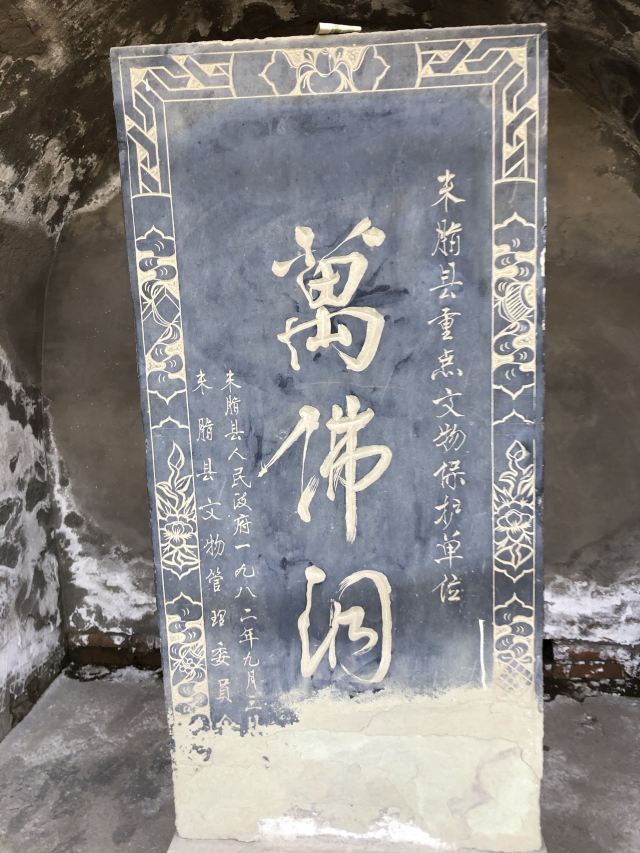 米脂县重点文物保护单位
萬佛洞
米脂县人民政府一九八二年九月三日
米脂县文物管理委員会